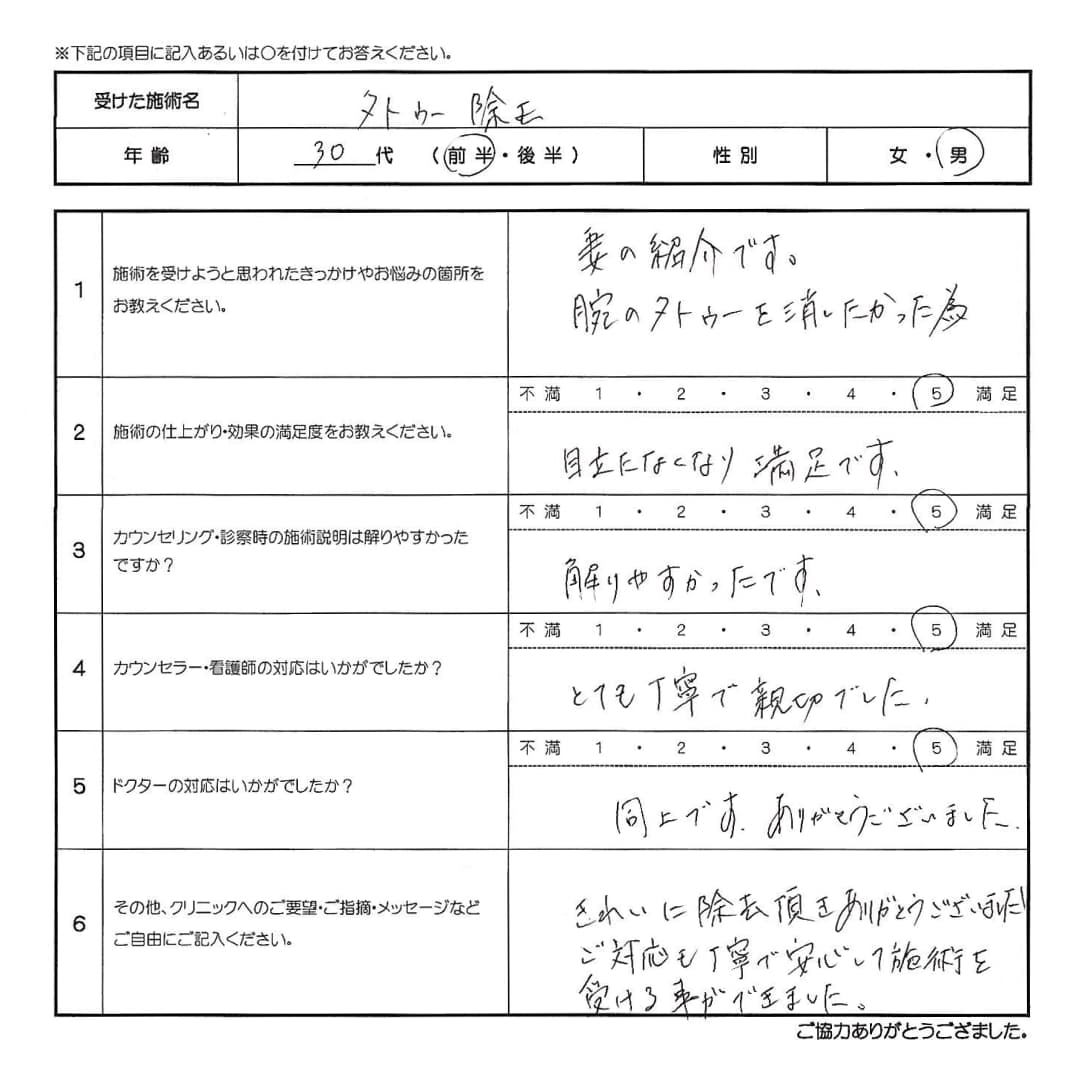 ※下記の項目に記入あるいは○を付けてお答えください。
受けた施術名 タトゥー除去
年齢 30代 (前半・後半) 性別 女・男
1 施術を受けようと思われたきっかけやお悩みの箇所を
お教えください。
妻の紹介です。
腕のタトゥーを消したかった為
2 施術の仕上がり・効果の満足度をお教えください。
不満 1・2・3・4・5 満足
目立たなくなり満足です、
3 カウンセリング・診察時の施術説明は解りやすかった
ですか?
不満 1・2・3・4・5 満足
解りやすかったです、
4 カウンセラー・看護師の対応はいかがでしたか?
不満 1・2・3・4・5 満足
とても丁寧で親切でした、
5 ドクターの対応はいかがでしたか?
不満 1・2・3・4・5 満足
同上です、ありがとうございました、
6 その他、クリニックへのご要望・ご指摘・メッセージなど
ご自由にご記入ください。
きれいに除去頂きありがとうございました!
ご対応も丁寧で安心して施術を
受ける事ができました。
ご協力ありがとうござました。